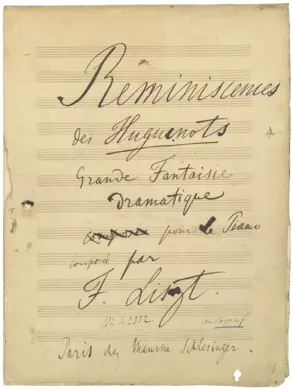 Reminiscences
des Huguenots
Grande Fantaisie
dramatique
composée pour le Piano
composée par
F. Liszt.
M. S. 2332.
autograf
Paris chez Maurice Schlesinger.